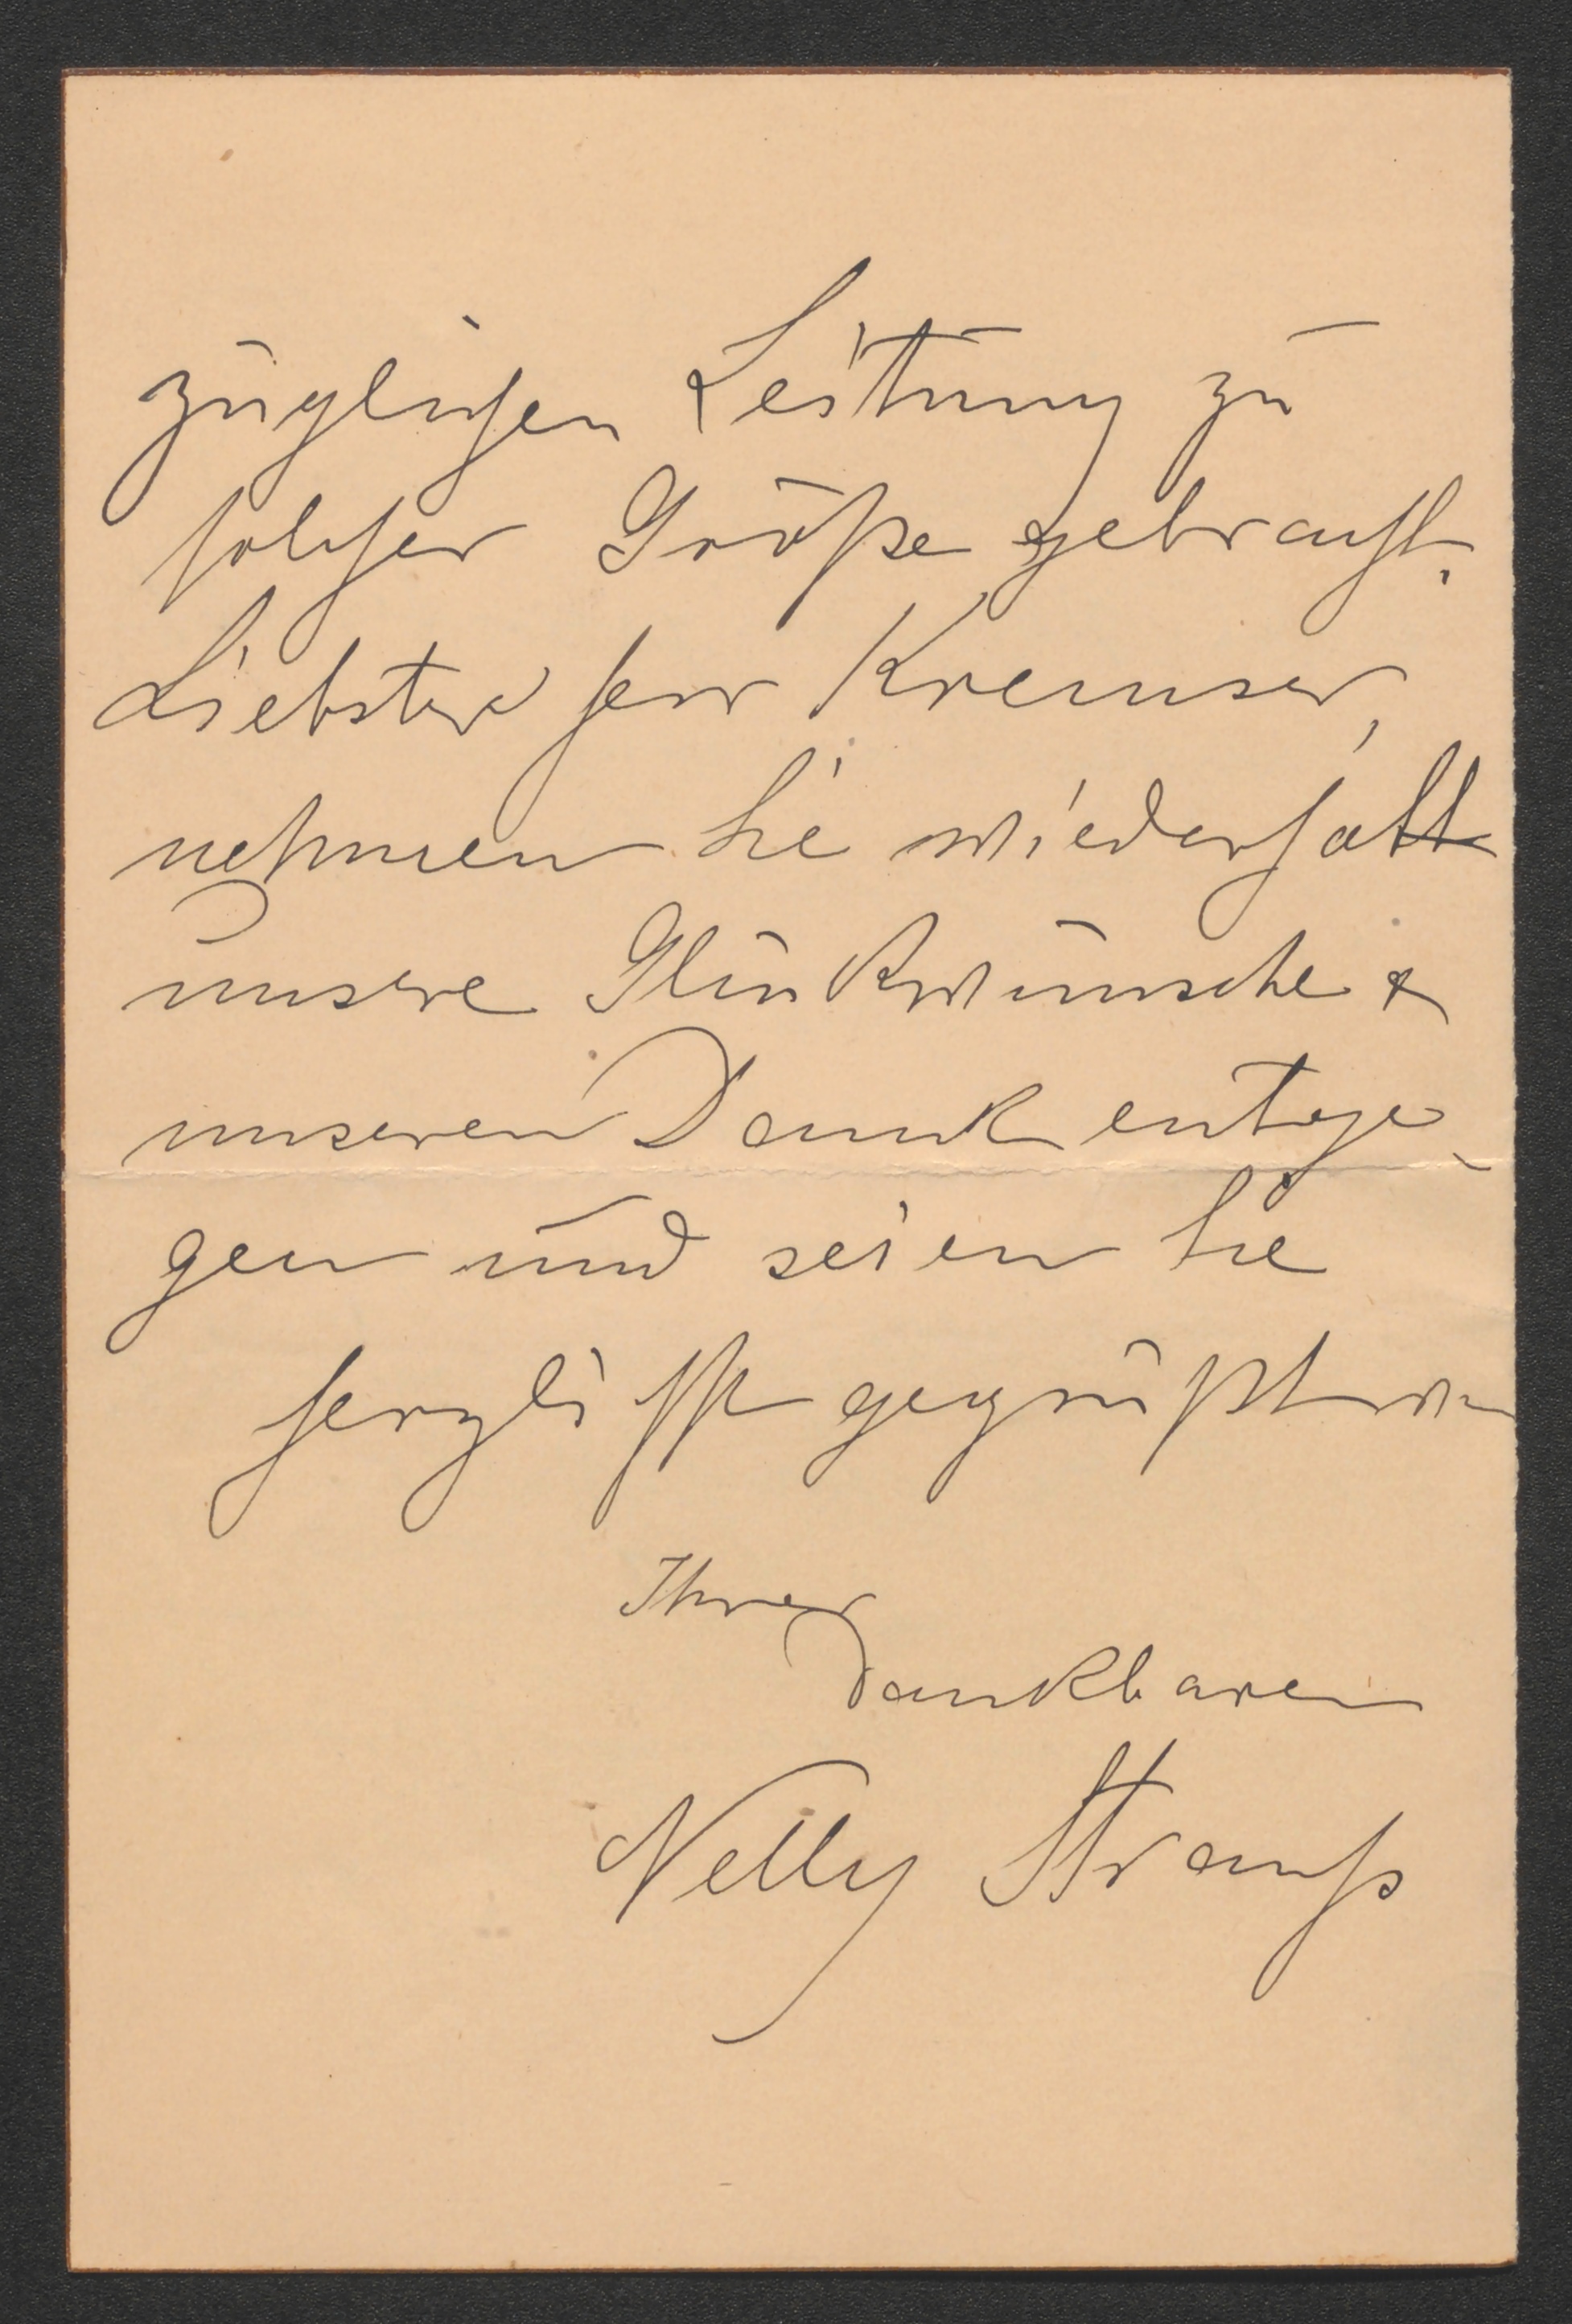 züglichen Leitung zu
solcher Größe gebracht.
Liebster Herr Kremser,
nehmen Sie wiederholt
unsere Glückwünsche &
unseren Dank entge-
gen und seien Sie
herzlichst gegrüßt von
Ihrer
dankbaren
Nelly Strauß